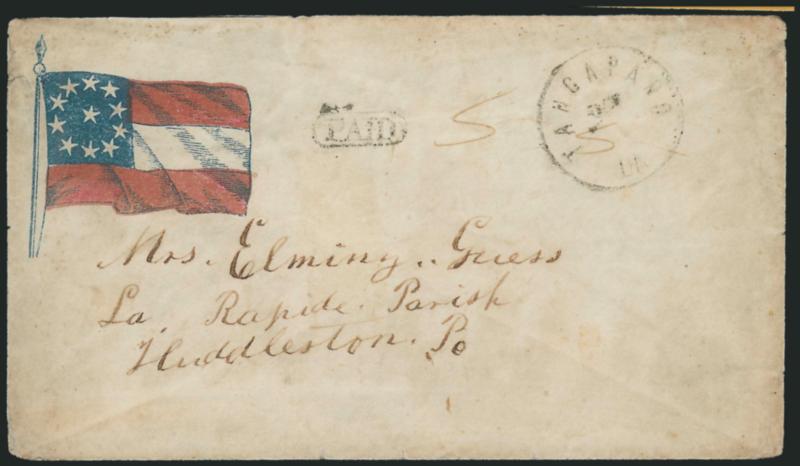 PAID
5
TANGAPAHO
LA
5
Mrs. Elminy.. Guess
La, Rapide. Parish
Huddleston. Po